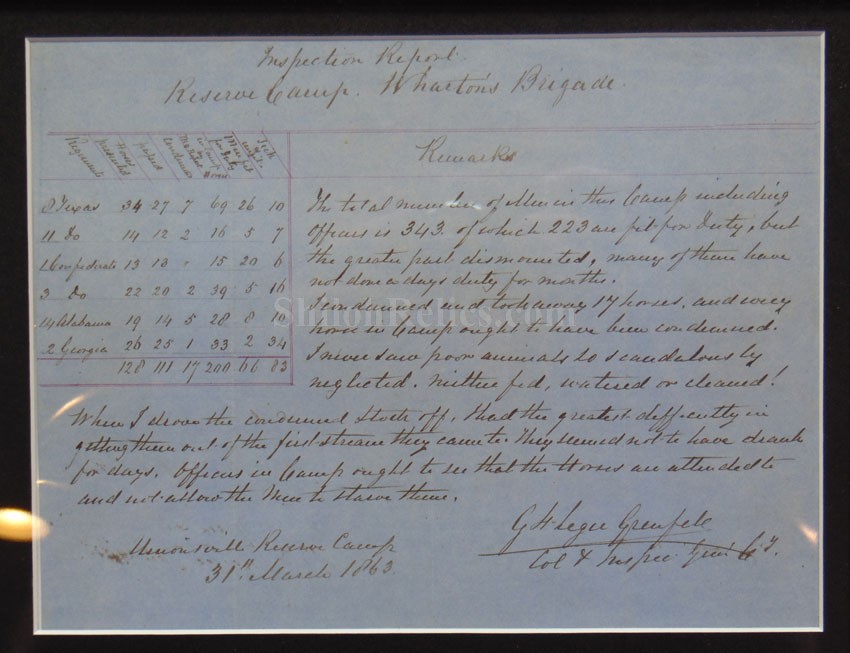 Inspection Report
Reserve Camp. Wharton's Brigade.
Regiments Horses presented passed Condemned Men fit for Duty Sick
Remarks
8 Texas 34 27 7 69 26 10
11 Do 14 12 2 16 5 7
1 Confederate 13 13 " 15 20 6
3 Do 22 20 2 39 5 16
14 Alabama 19 14 5 28 8 10
2 Georgia 26 25 1 33 2 34
128 111 17 200 66 83
The total number of Men in this Camp including
Officers is 343. of which 223 are fit for Duty, but
the greater part dismounted, many of them have
not done a days duty for months.
I condemned and took away 17 horses. and every
horse in Camp ought to have been condemned.
I never saw poor animals so scandalously
neglected. Neither fed, watered or cleaned!
When I drove the condemned Stock off, I had the greatest difficulty in
getting them out of the first stream they came to. They seemed not to have drank
for days. Officers in Camp ought to see that the Horses are attended to
and not allow the Men to starve them.
Unionville Reserve Camp
31st March 1863.
G St Leger Grenfell
Col & Inspec. Gen. Cy.
ShilohRelics.com